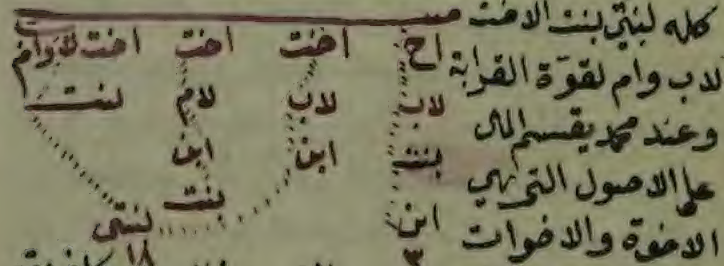 كله لبنتي بنت الاخت
لاب وام لقوة القرابة
وعند محمد يقسم المال
على الاصول التي هي
الاخوة والاخوات
مسـ
اخ اخت اخت اخت لاب وام
لاب لاب لام بنت
بنت ابن ابن
ابن بنت بنتي
٣ ١٨